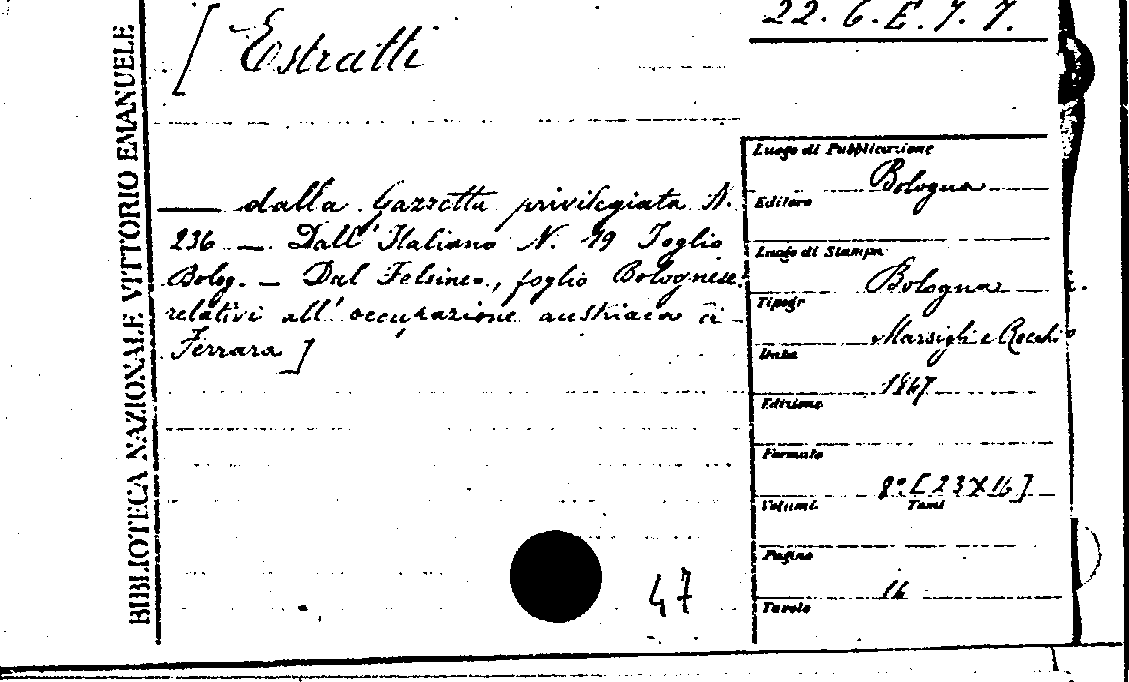 BIBLIOTECA NAZIONALE VITTORIO EMANUELE
22. 6. E. 7. 7.
[ Estratti
— dalla Gazzetta privilegiata N.
236 — Dall' Italiano N. 19 Foglio
Bolog. — Dal Felsineo, foglio Bolognese.
relativi all' occupazione austriaca di
Ferrara ]
47
Luogo di Pubblicazione
Bologna
Editore
Luogo di Stampa
Bologna
Tipogr
Marsigli e Rocchi
Data
1847
Edizione
Formato
8º [23X16]
Volumi. Tomi
Pagine
16
Tavole